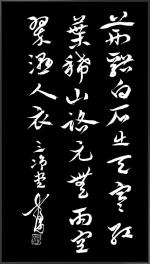 荊谿白石出天寒紅
葉稀山路元無雨空
翠濕人衣